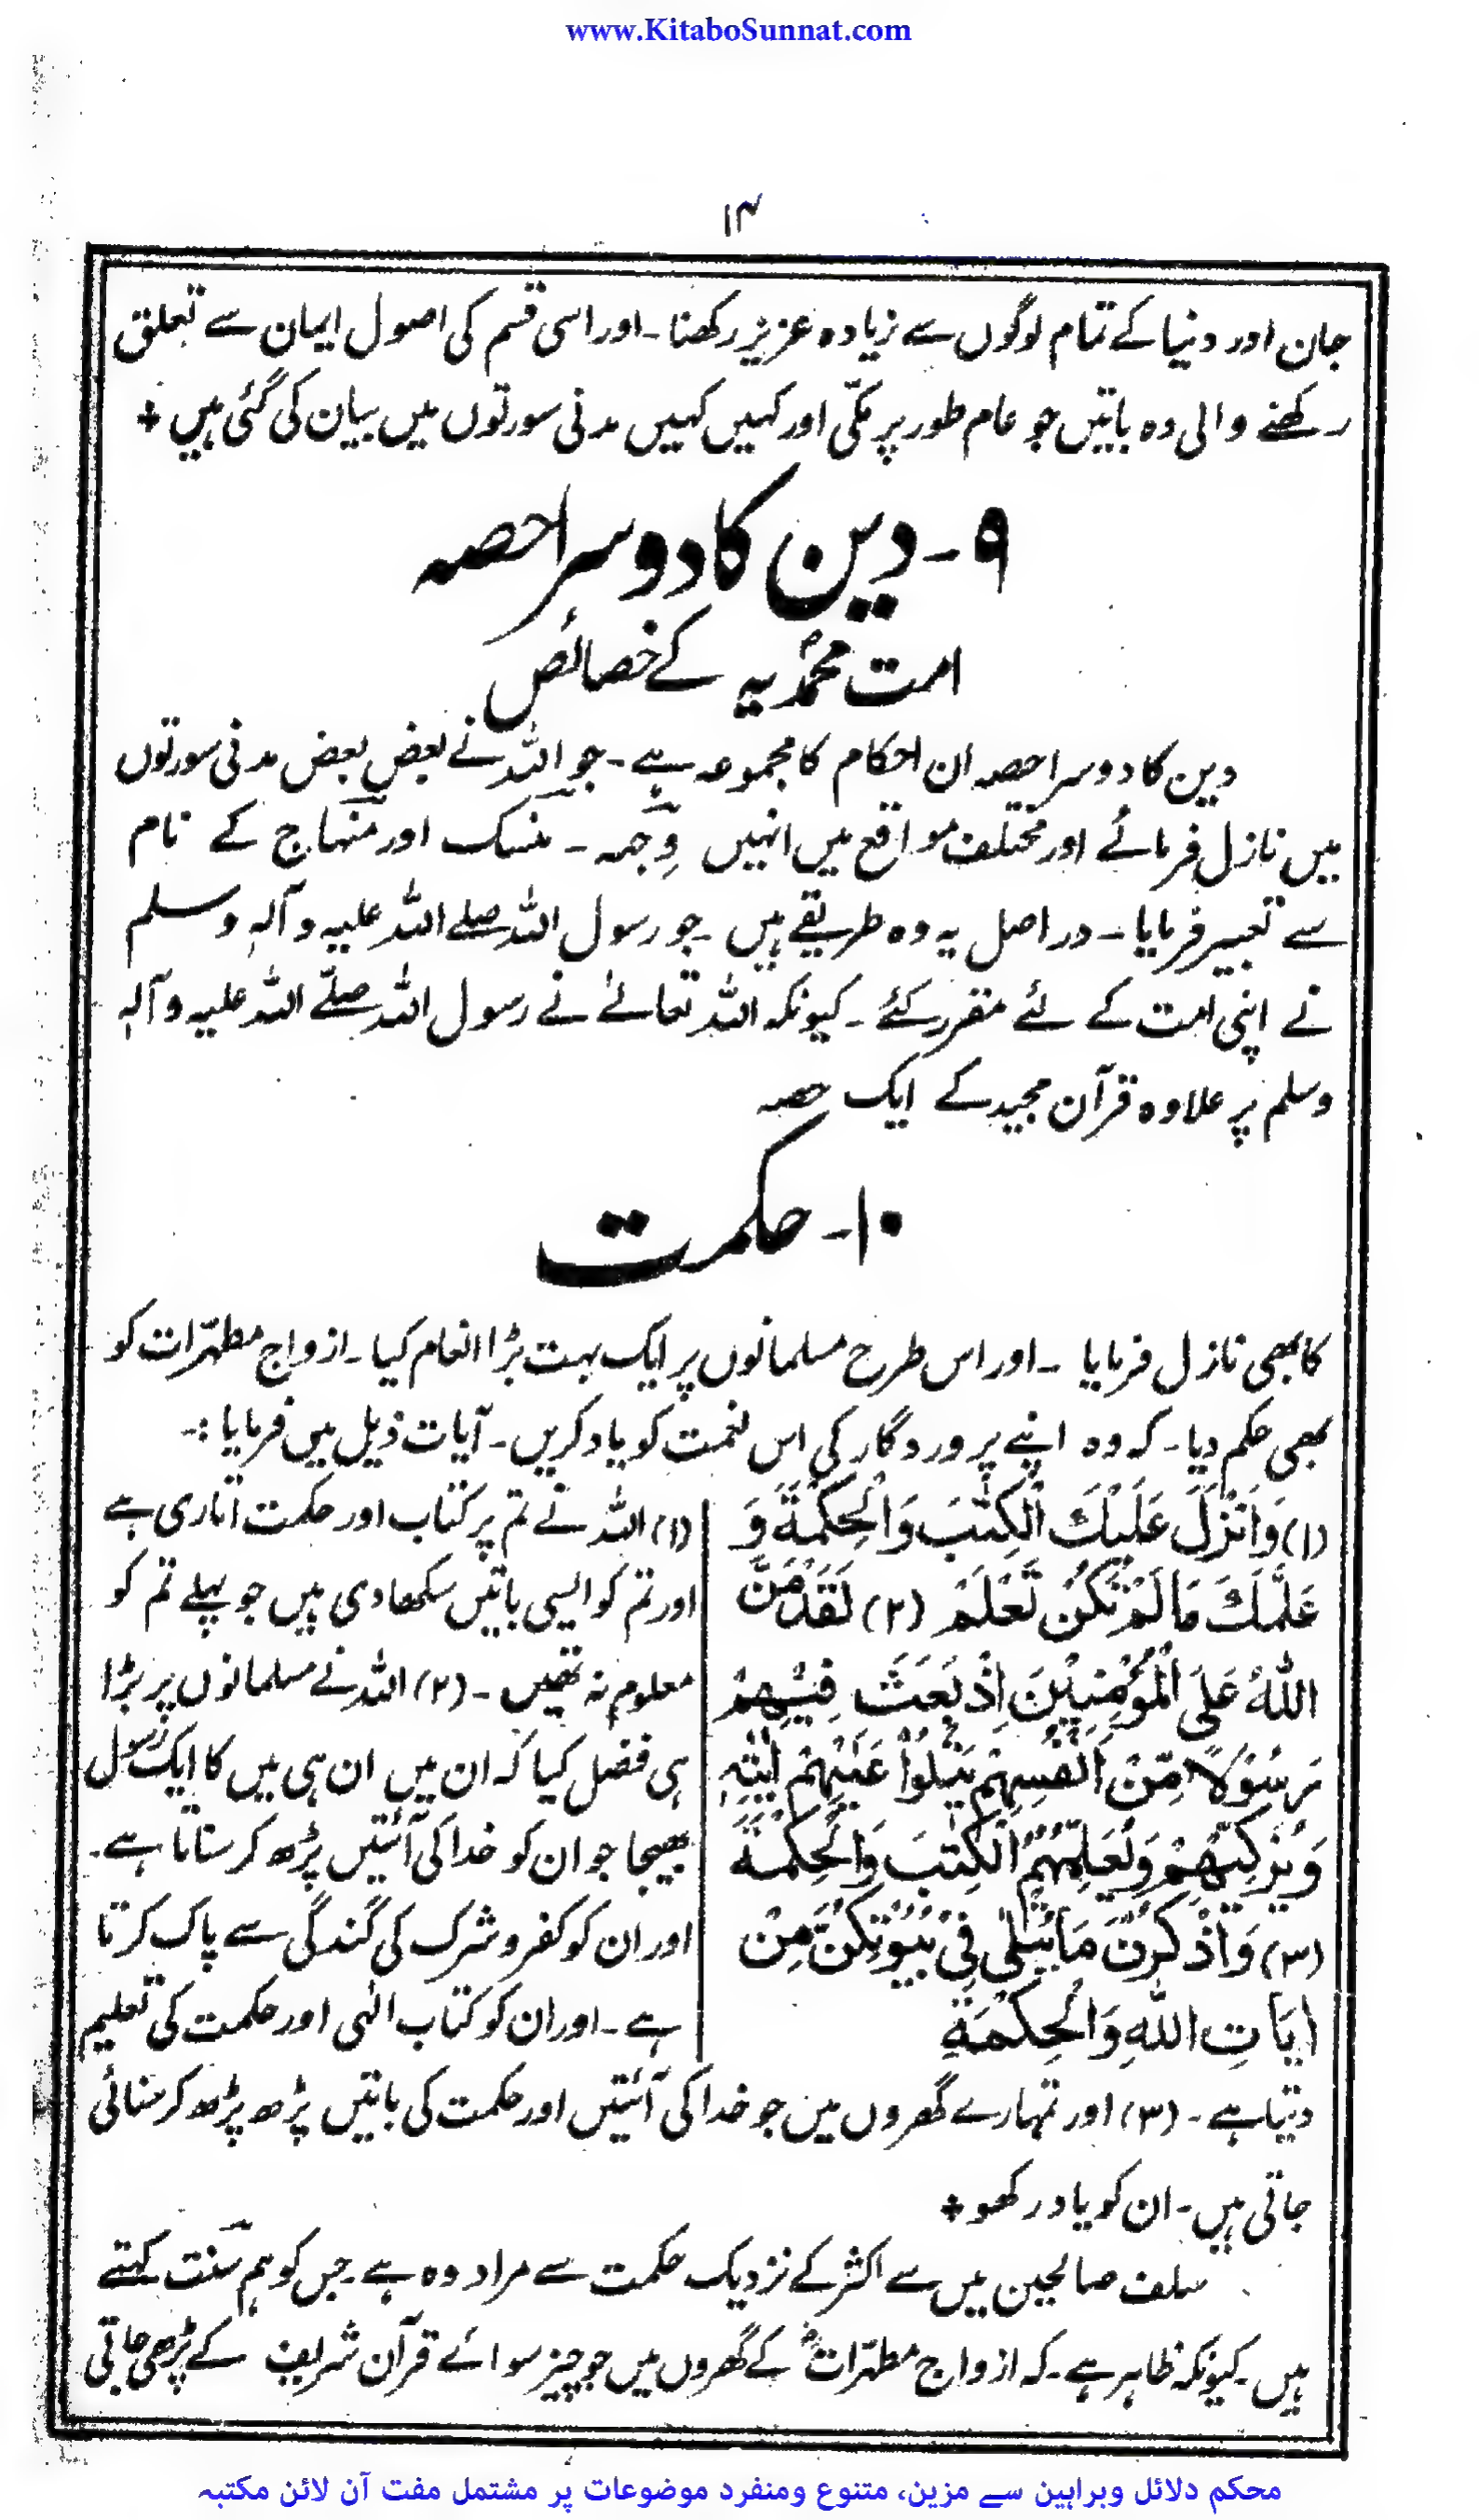 www.KitaboSunnat.com
۱۴
جان اور دنیا کے تمام لوگوں سے زیادہ عزیز رکھنا۔ اور اسی قسم کی اصول ایمان سے تعلق
رکھنے والی وہ باتیں جو عام طور پر مکّی اور کہیں کہیں مدنی سورتوں میں بیان کی گئی ہیں +
۹۔ دین کا دوسرا حصہ
امت محمدؐیہ کے خصائص
دین کا دوسرا حصہ ان احکام کا مجموعہ ہے۔ جو اللہ نے بعض بعض مدنی سورتوں
میں نازل فرمائے اور مختلف مواقع میں انہیں وِّجھہ۔ منسک اور منہاج کے نام
سے تعبیر فرمایا۔ در اصل یہ وہ طریقے ہیں۔ جو رسول اللہ صلے اللہ علیہ و آلہٖ وسلم
نے اپنی امت کے لئے مقرر کئے۔ کیونکہ اللہ تعالےٰ نے رسول اللہ صلّے اللہ علیہ و آلہٖ
وسلم پر علاوہ قرآن مجید کے ایک حصہ
۱۰۔ حکمت
کا بھی نازل فرمایا۔ اور اس طرح مسلمانوں پر ایک بہت بڑا انعام کیا۔ ازواج مطہّرات کو
بھی حکم دیا۔ کہ وہ اپنے پروردگار کی اس نعمت کو یاد کریں۔ آیات ذیل میں فرمایا :۔
(۱) وَاَنْزَلَ عَلَیْكَ الْکِتٰبَ وَالْحِکْمَةَ وَ
عَلَّمَكَ مَا لَمْ تَکُنْ تَعْلَمُ (۲) لَقَدْ مَنَّ
اللّٰهُ عَلَی الْمُؤْمِنِیْنَ اِذْ بَعَثَ فِیْهِمْ
رَسُوْلًا مِّنْ اَنْفُسِهِمْ یَتْلُوْا عَلَیْهِمْ اٰیٰتِهٖ
وَیُزَکِّیْهِمْ وَیُعَلِّمُهُمُ الْکِتٰبَ وَالْحِکْمَةَ
(۳) وَاذْکُرْنَ مَا یُتْلٰی فِیْ بُیُوْتِکُنَّ مِنْ
اٰیَاتِ اللّٰهِ وَالْحِکْمَةِ
(۱) اللہ نے تم پر کتاب اور حکمت اتاری ہے
اور تم کو ایسی باتیں سکھا دی ہیں جو پہلے تم کو
معلوم نہ تھیں۔ (۲) اللہ نے مسلمانوں پر بڑا
ہی فضل کیا کہ ان میں ان ہی میں کا ایک رسول
بھیجا جو ان کو خدا کی آئتیں پڑھ کر سناتا ہے۔
اور ان کو کفر و شرک کی گندگی سے پاک کرتا
ہے۔ اور ان کو کتاب الٰہی اور حکمت کی تعلیم
دیتا ہے۔ (۳) اور تمہارے گھروں میں جو خدا کی آئتیں اور حکمت کی باتیں پڑھ پڑھ کر سنائی
جاتی ہیں۔ ان کو یاد رکھو +
سلف صالحین میں سے اکثر کے نزدیک حکمت سے مراد وہ ہے۔ جس کو ہم سنت کہتے
ہیں۔ کیونکہ ظاہر ہے۔ کہ ازواج مطہّراتؓ کے گھروں میں جو چیز سوائے قرآن شریف کے پڑھی جاتی
محکم دلائل وبراہین سے مزین، متنوع ومنفرد موضوعات پر مشتمل مفت آن لائن مکتبہ